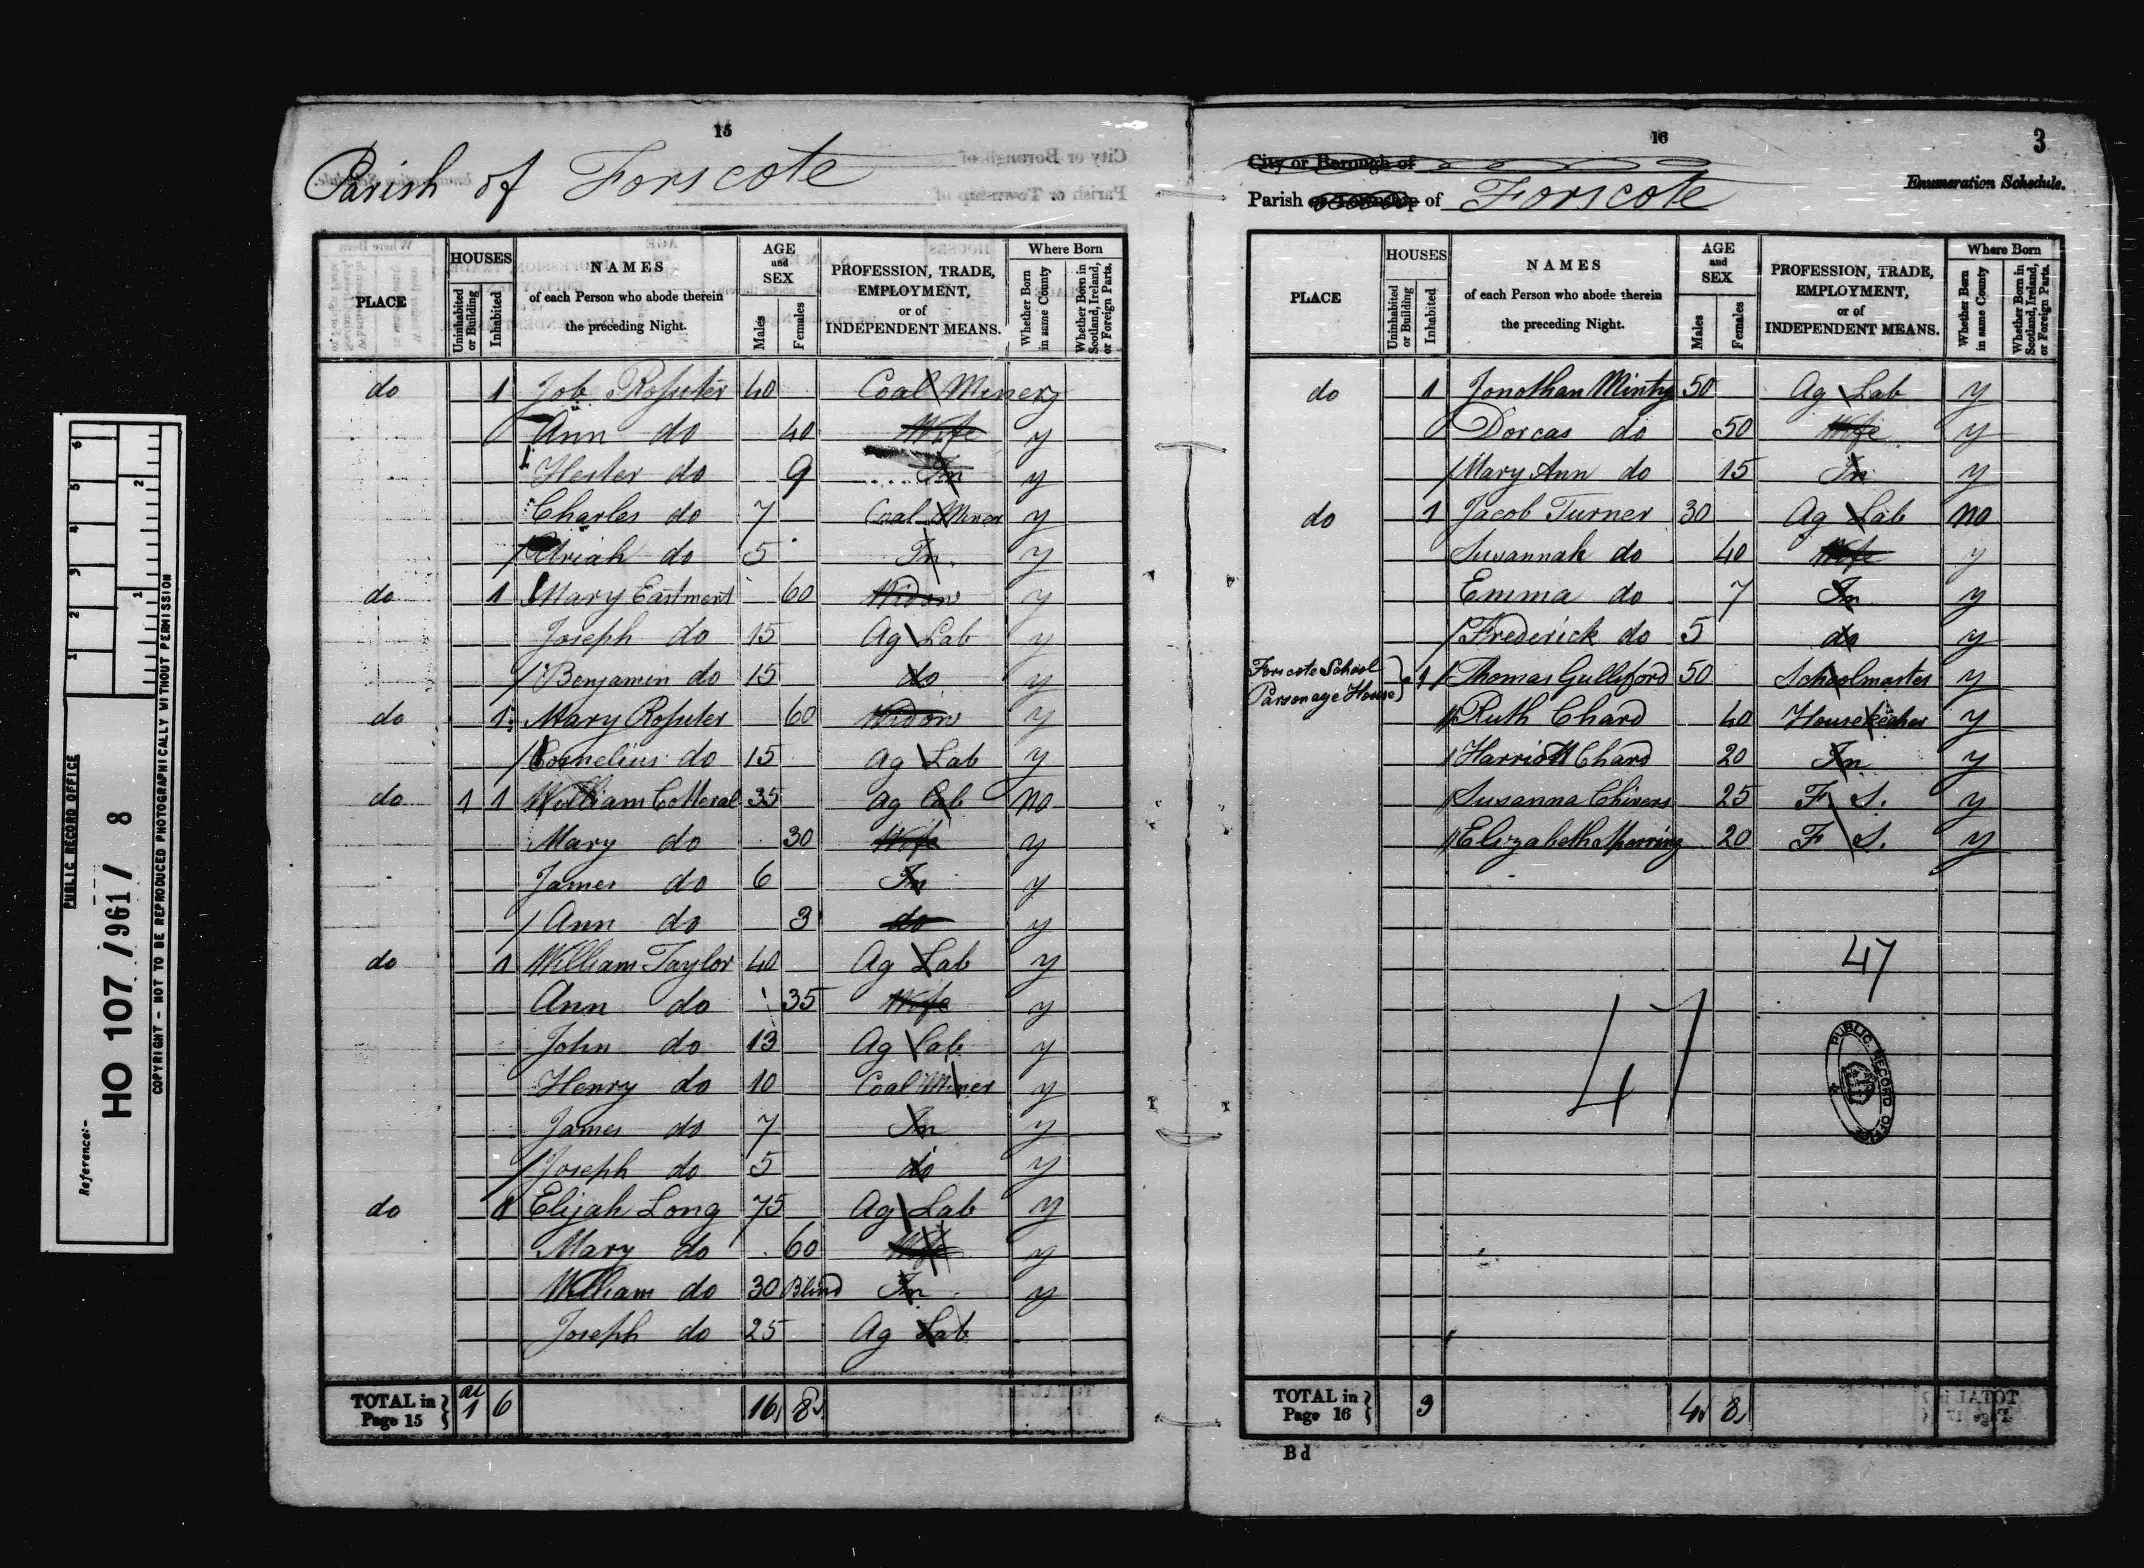 15
Parish of Forscote
PLACE
HOUSES
Uninhabited or Building
Inhabited
NAMES
of each Person who abode therein
the preceding Night.
AGE
and
SEX
Males
Females
PROFESSION, TRADE,
EMPLOYMENT,
or of
INDEPENDENT MEANS.
Where Born
Whether Born in same County
Whether Born in Scotland, Ireland, or Foreign Parts.
do 1 Job Rossiter 40 Coal Miner y
Ann do 40 Wife y
Hester do 9 In y
Charles do 7 Coal Miner y
Uriah do 5 In y
do 1 Mary Eastment 60 Widow y
Joseph do 15 Ag Lab y
Benjamin do 15 do y
do 1 Mary Rossiter 60 Widow y
Cornelius do 15 Ag Lab y
do 1 1 William Cotteral 35 Ag Lab no
Mary do 30 Wife y
James do 6 In y
Ann do 3 do y
do 1 William Taylor 40 Ag Lab y
Ann do 35 Wife y
John do 13 Ag Lab y
Henry do 10 Coal Miner y
James do 7 In y
Joseph do 5 do y
do 1 Elijah Long 75 Ag Lab y
Mary do 60 Wife y
William do 30 Blind In y
Joseph do 25 Ag Lab
TOTAL in
Page 15
1 6 16 8
16
3
City or Borough of
Enumeration Schedule.
Parish or Township of Forscote
PLACE
HOUSES
Uninhabited or Building
Inhabited
NAMES
of each Person who abode therein
the preceding Night.
AGE
and
SEX
Males
Females
PROFESSION, TRADE,
EMPLOYMENT,
or of
INDEPENDENT MEANS.
Where Born
Whether Born in same County
Whether Born in Scotland, Ireland, or Foreign Parts.
do 1 Jonothan Minty 50 Ag Lab y
Dorcas do 50 Wife y
Mary Ann do 15 In y
do 1 Jacob Turner 30 Ag Lab no
Susannah do 40 Wife y
Emma do 7 In y
Frederick do 5 do y
Forscote School
Parsonage House
1 Thomas Gulliford 50 Schoolmaster y
Ruth Chard 40 Housekeeper y
Harriott Chard 20 In y
Susanna Chivers 25 F S. y
Elizabeth 20 F S. y
47
47
PUBLIC RECORD OFFICE
TOTAL in
Page 16
3 4 8
B d
PUBLIC RECORD OFFICE
Reference:-
HO 107 / 961 / 8
COPYRIGHT - NOT TO BE REPRODUCED PHOTOGRAPHICALLY WITHOUT PERMISSION
1 2 3 4 5 6
1 2